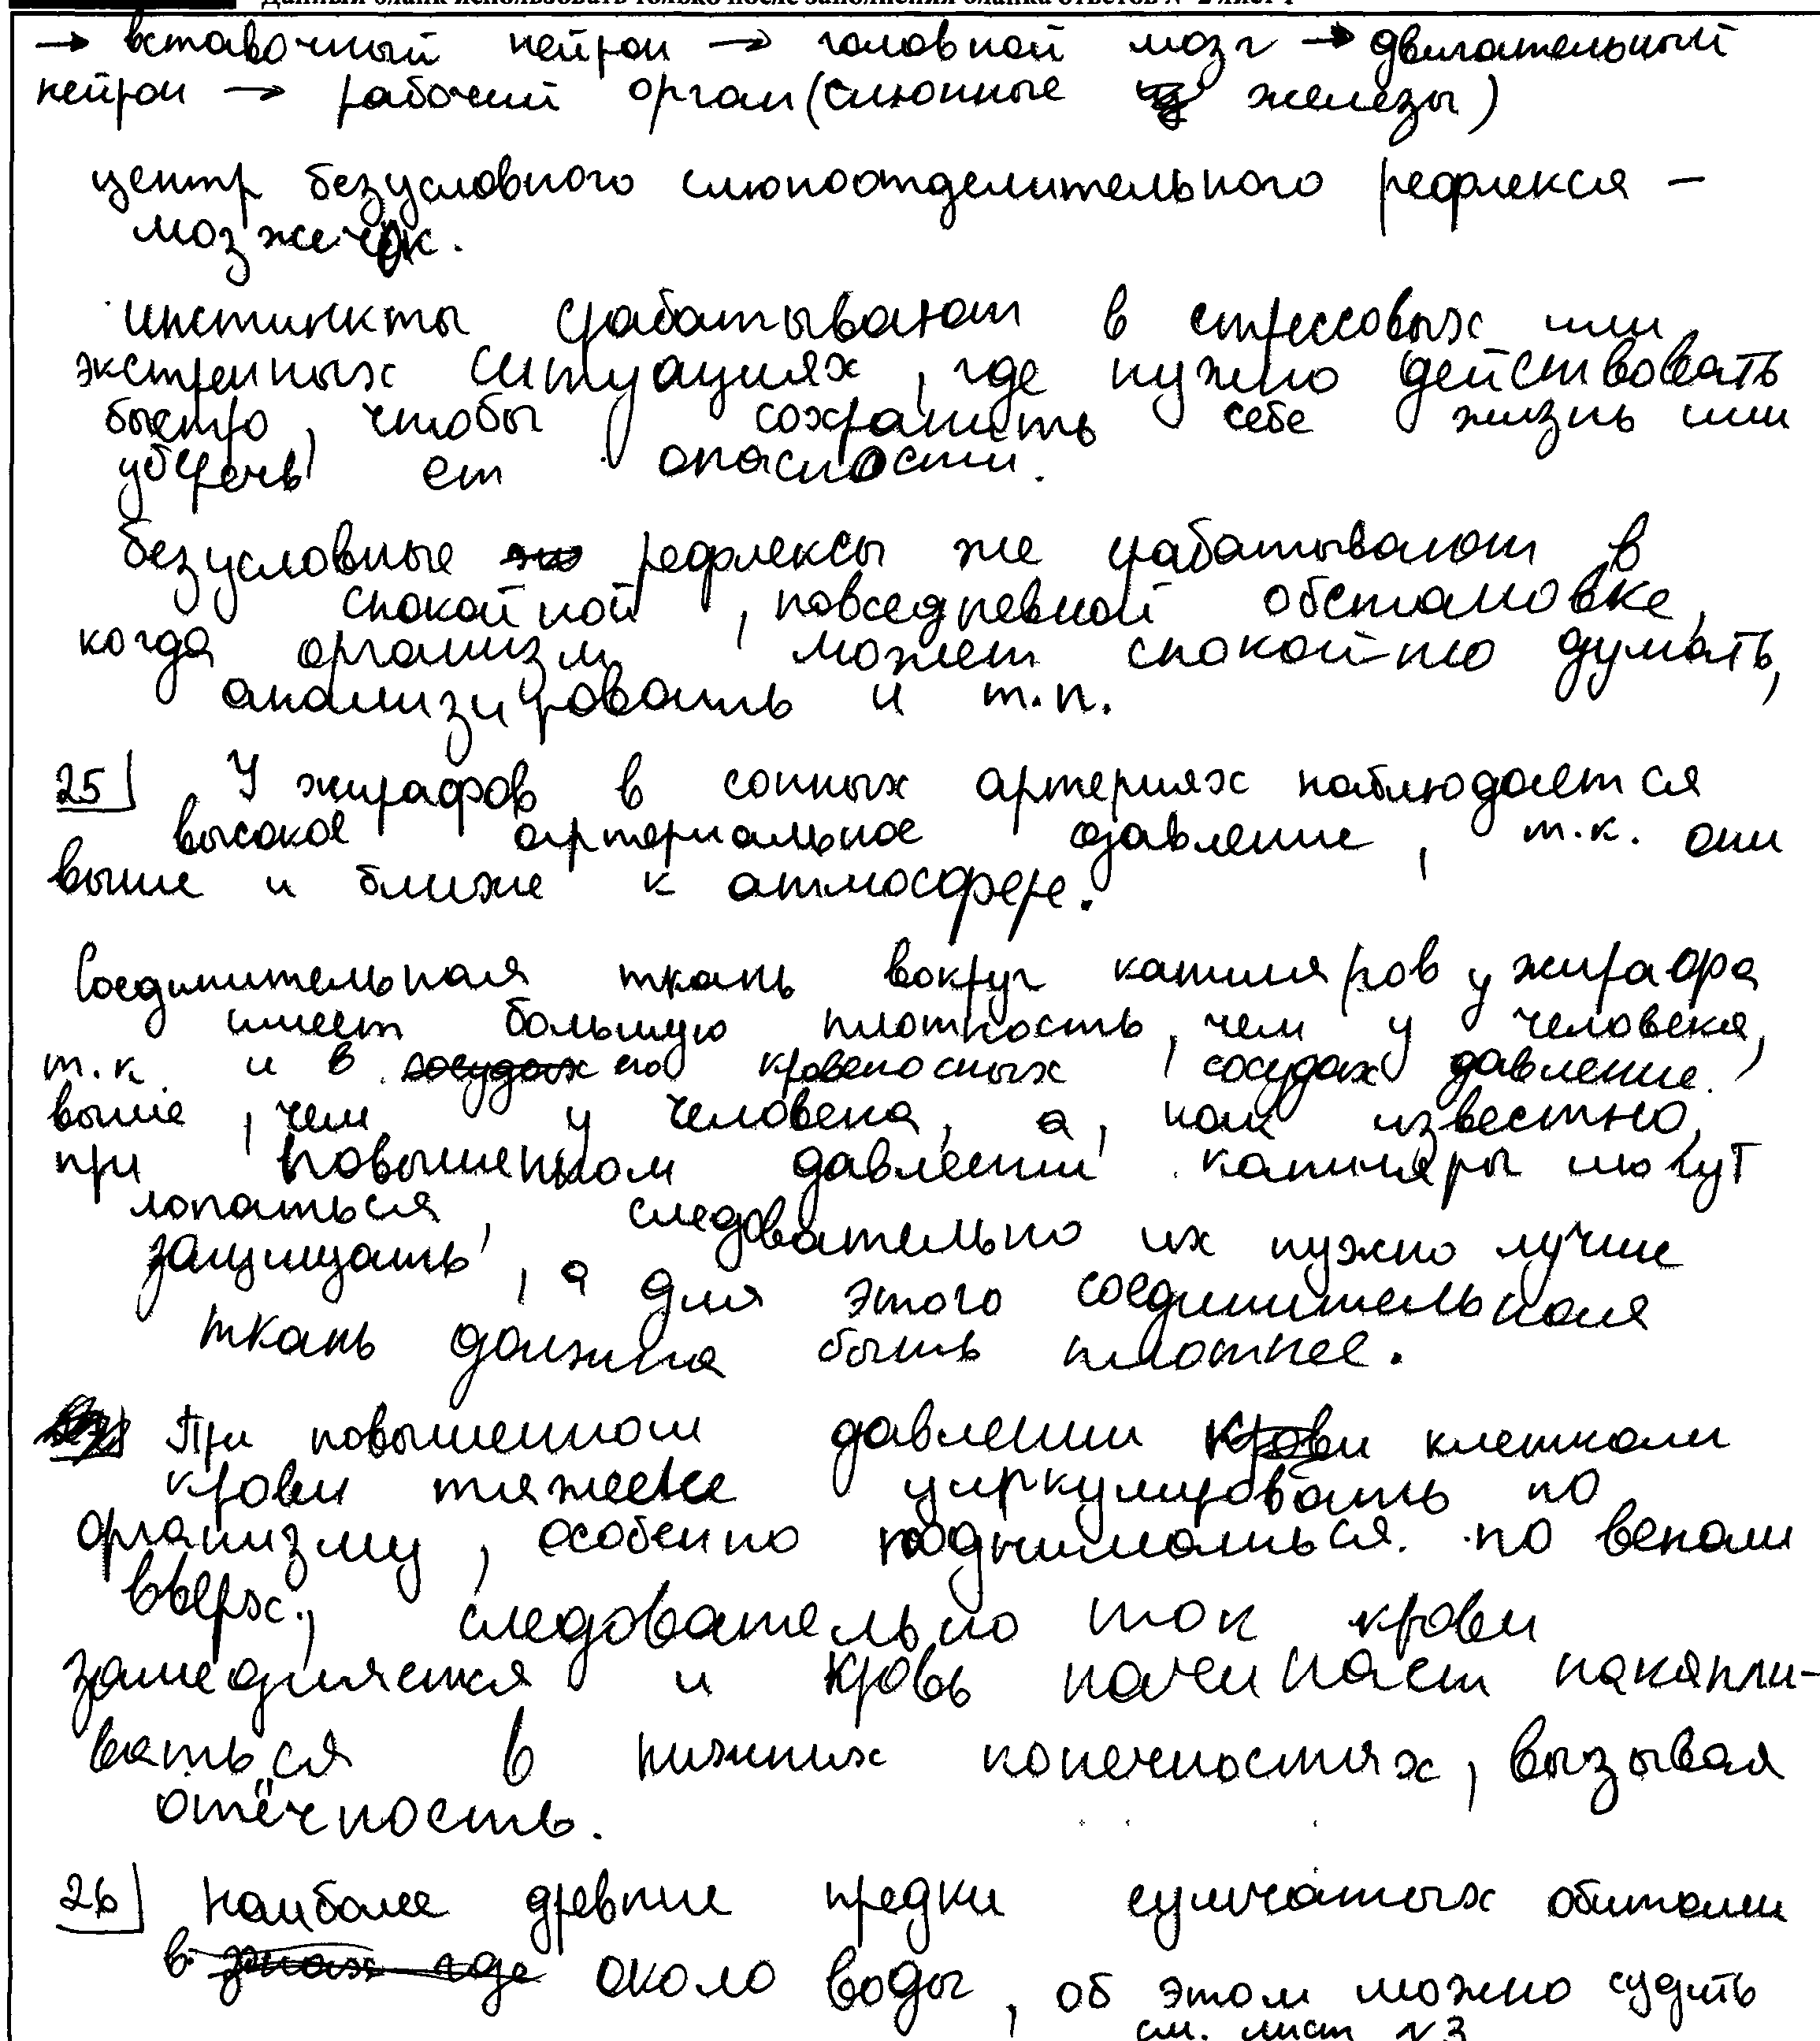 Данный бланк использовать только после заполнения бланка ответов № 2 лист 1
→ вставочный нейрон → головной мозг → двигательный
нейрон → рабочий орган (слюнные железы)
центр безусловного слюноотделительного рефлекса –
мозжечок.
инстинкты срабатывают в стрессовых или
экстренных ситуациях, где нужно действовать
быстро, чтобы сохранить себе жизнь или
уберечь от опасности.
безусловные рефлексы же срабатывают в
спокойной, повседневной обстановке,
когда организм может спокойно думать,
анализировать и т.п.
25 У жирафов в сонных артериях наблюдается
высокое артериальное давление, т.к. они
выше и ближе к атмосфере.
Соединительная ткань вокруг капиляров у жирафа
имеет большую плотность, чем у человека,
т.к. и в сосудах его кровеносных сосудах давление
выше, чем у человека, а, как известно,
при повышенном давлении капиляры могут
лопаться, следовательно их нужно лучше
защищать, а для этого соединительная
ткань должна быть плотнее.
При повышенном давлении крови клеткам
крови тяжелее циркулировать по
организму, особенно подниматься по венам
вверх, следовательно ток крови
замедляется и кровь начинает накапли-
ваться в нижних конечностях, вызывая
отёчность.
26 Наиболее древние предки сумчатых обитали
в около воды, об этом можно судить
см. лист №3